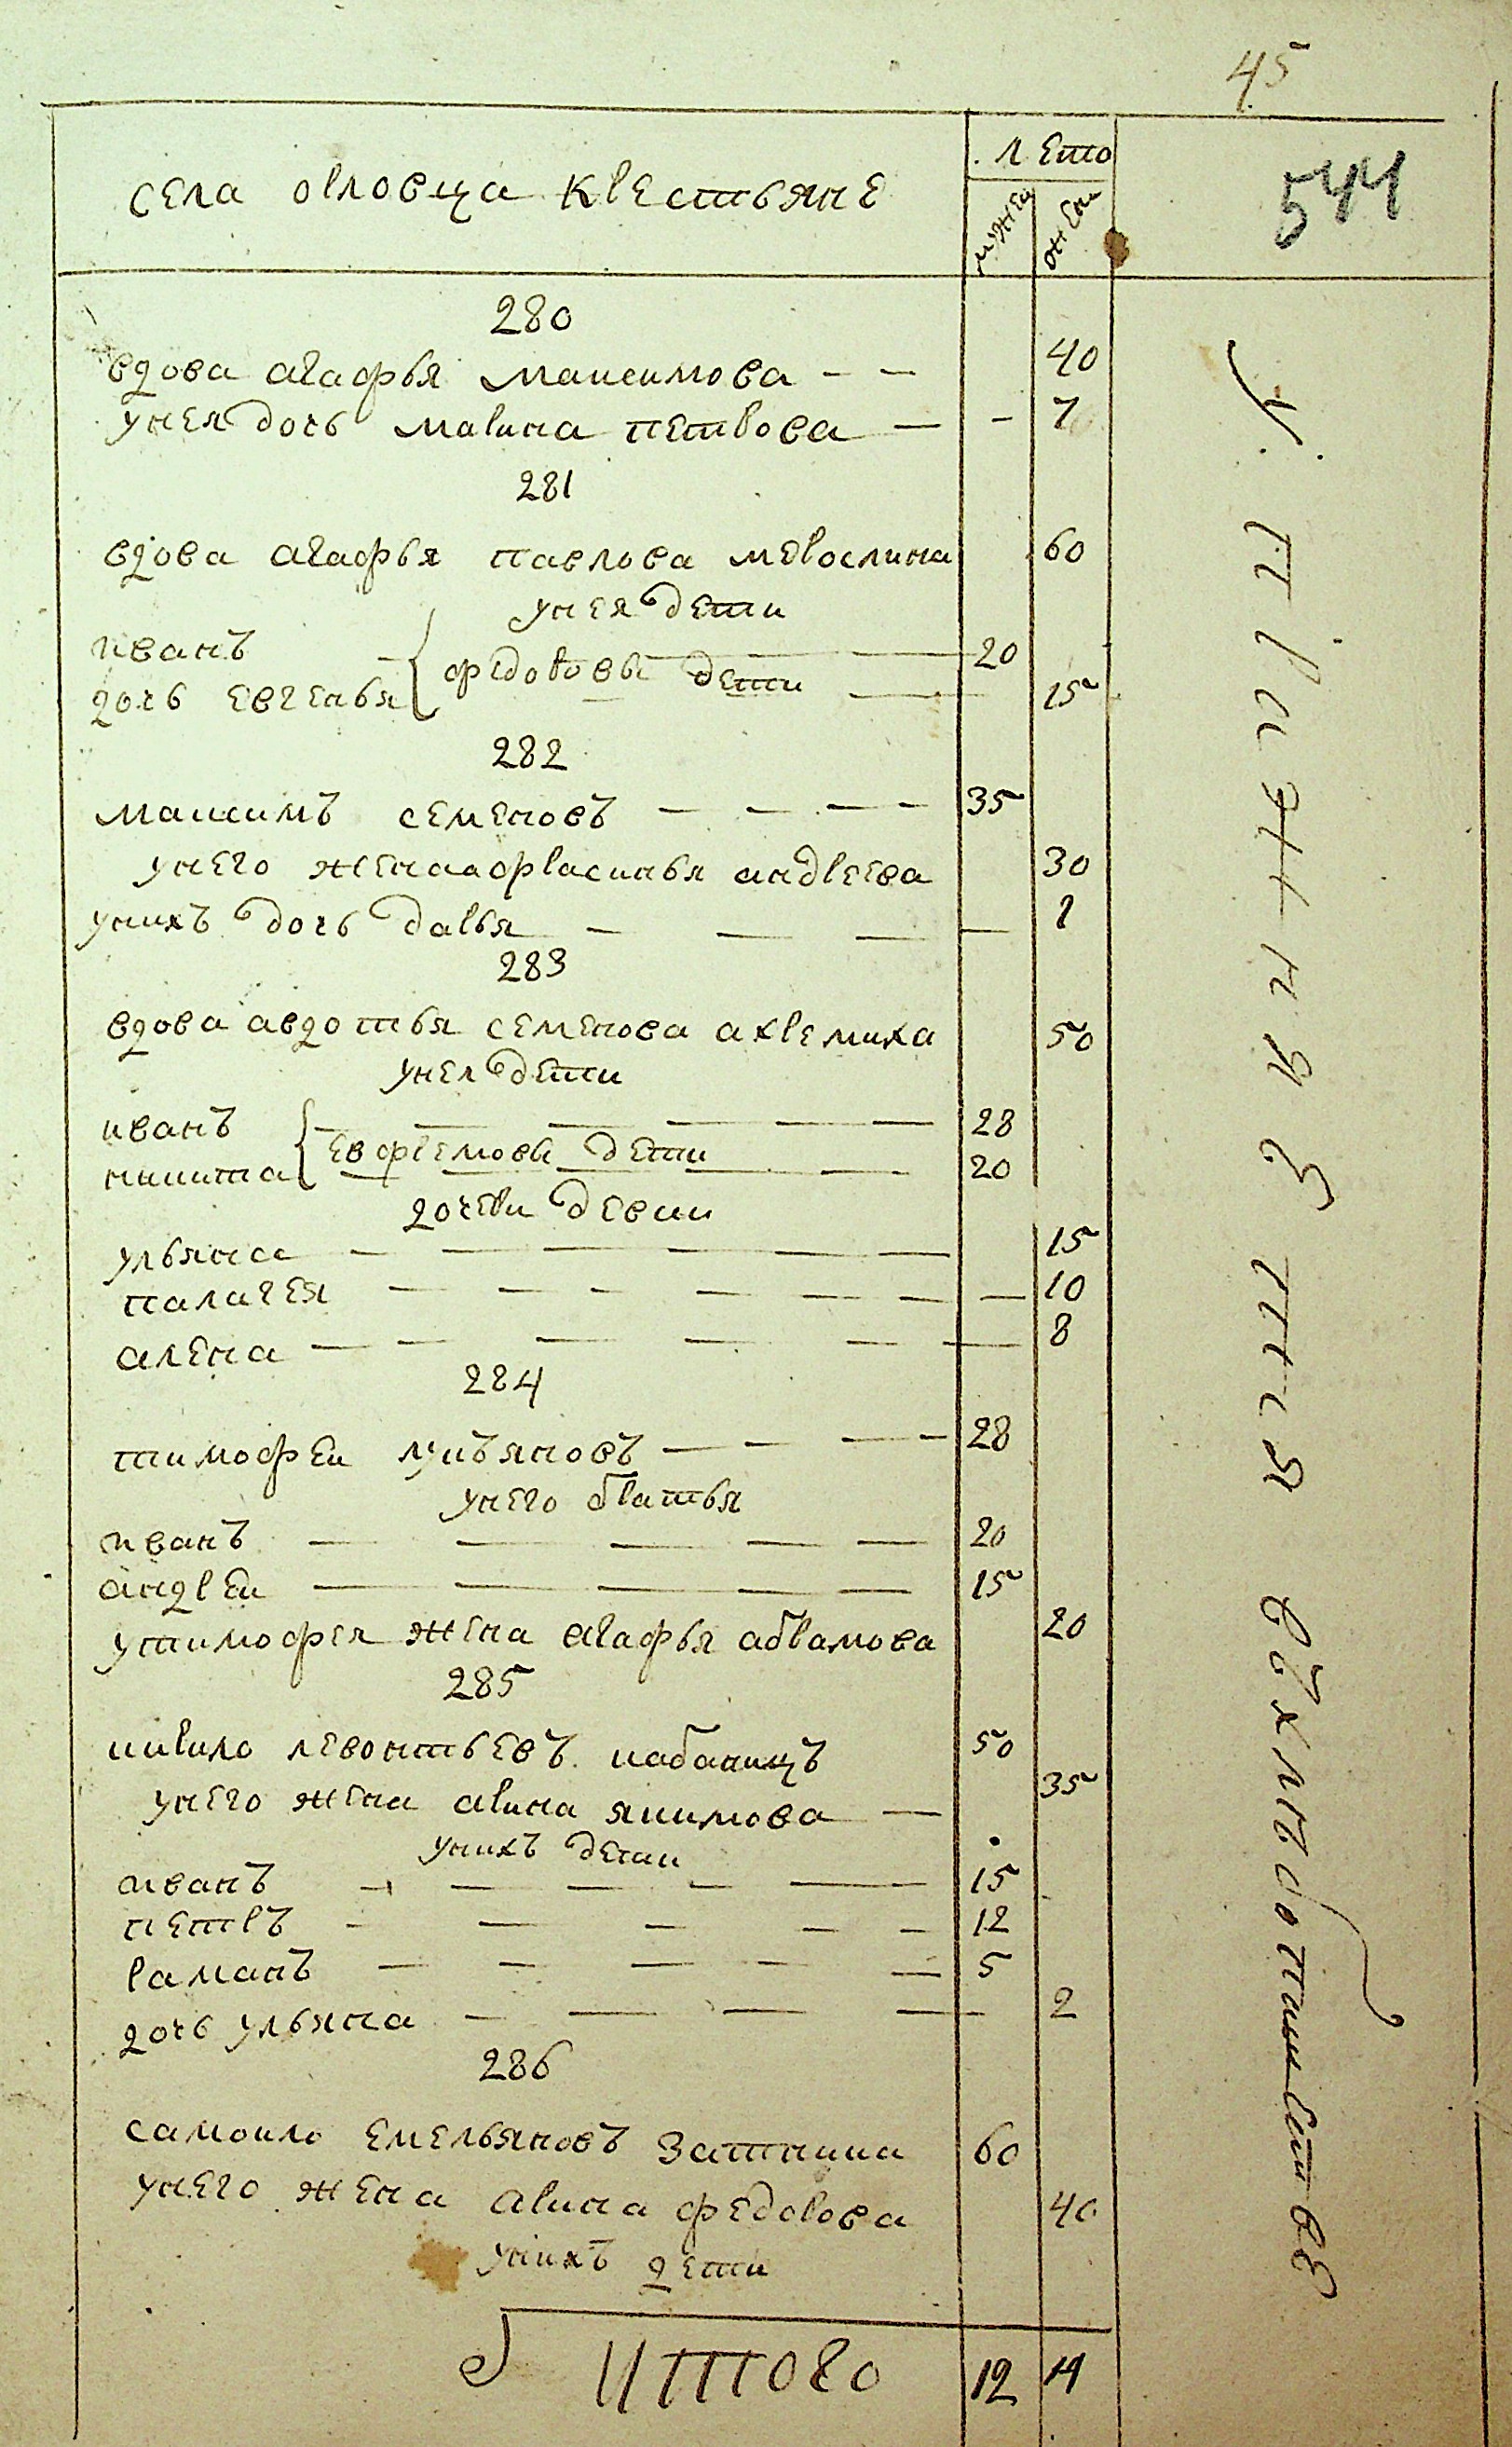 45
села орловца крестьяне
лето
мужеи
жени
544
280
вдова агафья максимова — — 40
унея дочь марина петрова — — 7
281
вдова агафья павлова 60
унея дети
иванъ 20
федоровы дети
дочь евгенья 15
282
максимъ семеновъ — — — — 35
унего жена афрасинья андреева 30
унихъ дочь дарья — — — — 1
283
вдова авдотья семенова ахремиха 50
унея дети
иванъ — — — — — — 28
ефремовы дети
никита — — — — — 20
дочери девки
ульяна — — — — — — 15
палагея — — — — — — — 10
алена — — — — — — 8
284
тимофеи лукъяновъ — — — — 28
унего братья
иванъ — — — — — 20
андреи — — — — — 15
утимофея жена агафья абрамова 20
285
кирило левонтьевъ кабаницъ 50
унего жена арина якимова — 35
унихъ дети
иванъ — — — — — 15
петръ — — — — — 12
раманъ — — — — — 5
дочь ульяна — — — — 2
286
самоило емельяновъ 60
унего жена арина федорова 40
унихъ дети
итого 12 14